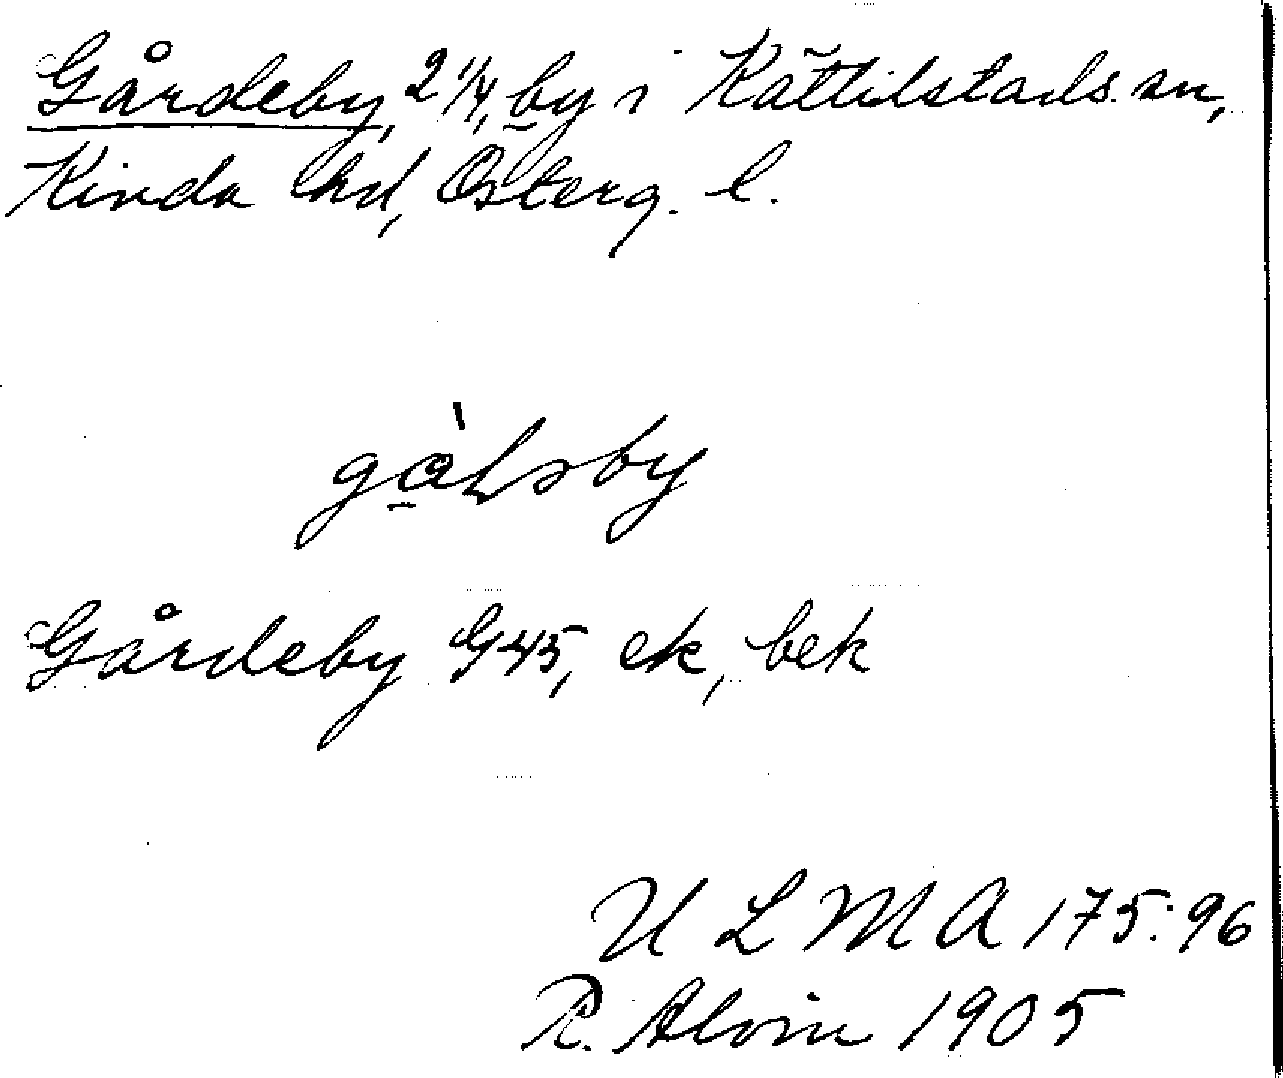 Gårdeby, 2 1/4, by i Kättilstads sn,
Kinda hd, Österg. l.
Gårdeby G45, ek, bek
ULMA 175:96
R. Alvin 1905